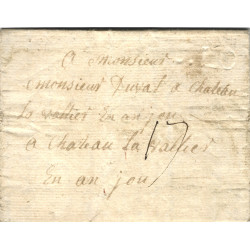 A monsieur
monsieur Duval a chateau
la vallier en anjou
a chateau la vallier
17
en an jou